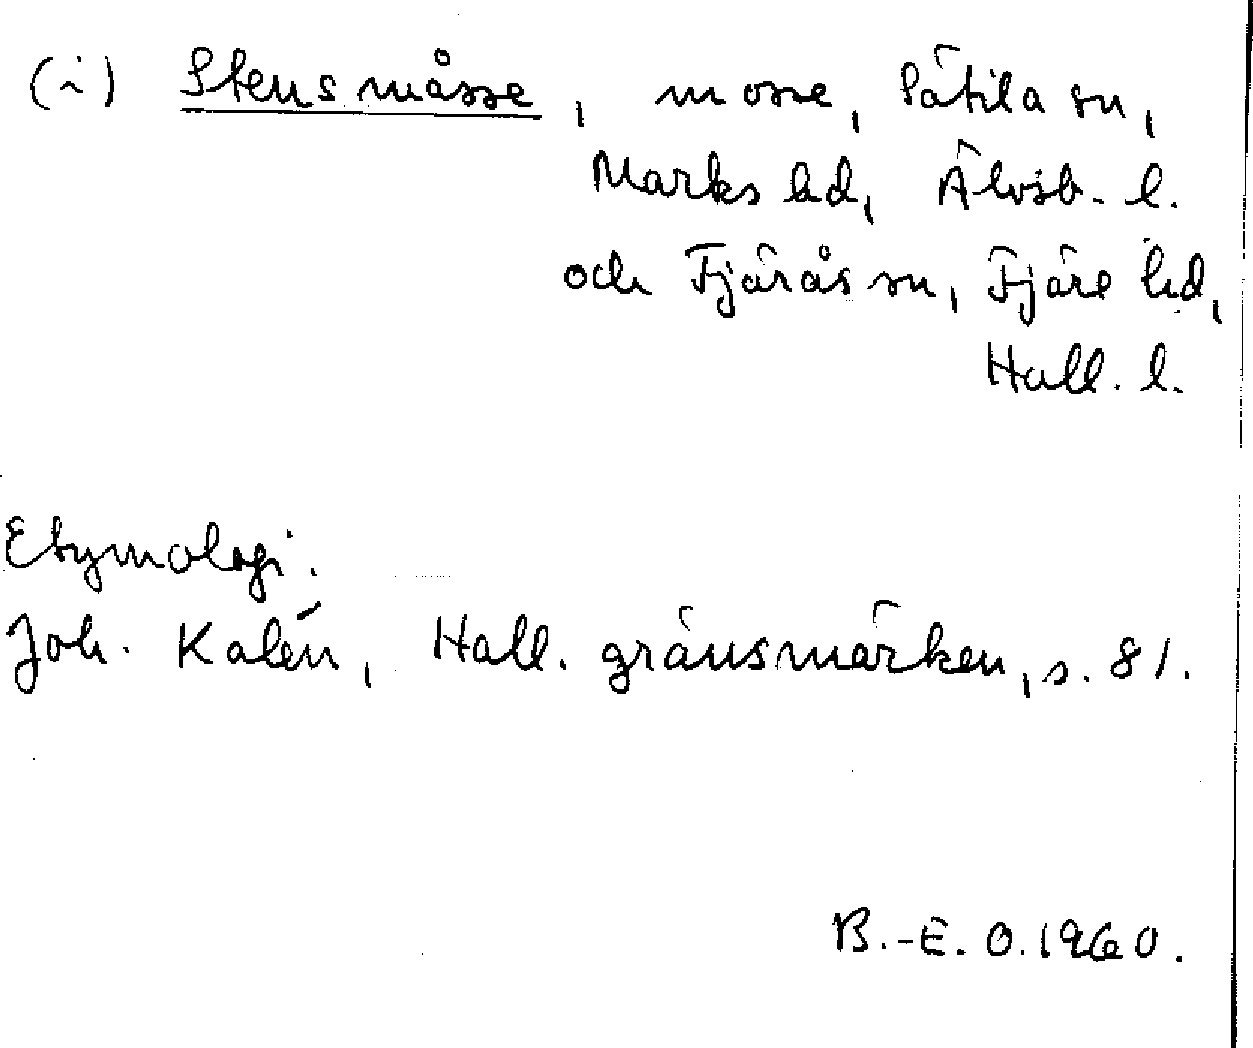 (i) Stensmåsse, mosse, Sätila sn,
Marks hd, Älvsb. l.
och Fjärås sn, Fjäre hd,
Hall. l.
Etymologi:
Joh. Kalén, Hall. gränsmärken, s. 81.
B.-E. O. 1960.